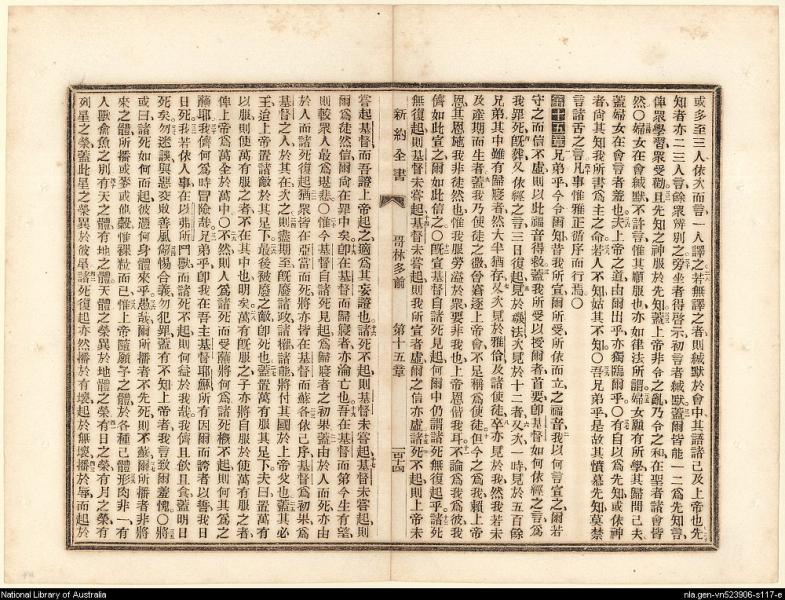 或多至三人依次而言一人譯之若無譯之者則緘默於會中其語諸己及上帝也先
知者亦二三人言餘衆辨別之旁坐者得啓示初言者緘默蓋爾皆能一一爲先知言
俾衆學習衆受勸且先知之神服於先知蓋上帝非令之亂乃令之和在聖者諸會皆
然〇婦女在會緘默不許言惟其順服也亦如律法所謂婦女願有所學其歸問己夫
蓋婦女在會言者羞也夫上帝之道由爾出乎亦獨臨爾乎〇有自以爲先知或依神
者尚其知我所書爲主之命若人不知姑其不知〇吾兄弟乎是故其憤慕先知莫禁
言諸舌之言凡事惟雅正循序而行焉〇
第十五章 兄弟乎今令爾知昔我所宣爾所受所依而立之福音我以何言宣之爾若
守之而信不虛則以此福音得救蓋我所受以授爾者首要即基督如何依經之言爲
我罪死旣葬又依經之言三日復起見於磯法次見於十二者又次一時見於五百餘
兄弟其中雖有歸寢者然大半猶存又次見於雅各及諸使徒卒亦見於我然我若未
及產期而生者蓋我乃使徒之微昔窘逐上帝會不足稱爲使徒但今之我賴上帝
恩其恩施我非徒然也惟我服勞溢於衆要非我也上帝恩偕我耳不論爲我爲彼我
儕如此宣之爾如此信之〇旣宣基督自諸死見起何爾中仍謂諸死無復起乎諸死
無復起則基督未嘗起基督未嘗起則我所宣者虛爾之信亦虛諸死不起則上帝未
新約全書 哥林多前 第十五章 一百十四
嘗起基督而吾證上帝起之適爲其妄證也諸死不起則基督未嘗起基督未嘗起則
爾爲徒然信爾尚在罪中矣卽在基督而歸寢者亦淪亡也吾在基督而第今生有望
則較衆人最爲堪悲〇惟今基督自諸死見起爲歸寢者之初果蓋由於人而死亦由
於人而諸死復起猶衆皆在亞當而死將亦皆在基督而蘇各依己序基督爲初果爲
基督之人於其在次之則盡期至旣廢諸政諸權諸能將付其國於上帝父也蓋其必
王迨上帝置諸敵於其足下旣後被廢之敵卽死也蓋置萬有服其足下夫曰置萬有
以服則使萬有服之者不在其中也明矣萬有旣服之子亦將自服於使萬有服之者
俾上帝爲萬全於萬中〇不然則人爲諸死而受蘸將何爲諸死槪不起則何其爲之
蘸耶我儕何爲時冒險哉兄弟乎卽我在吾主基督耶穌所有因爾而誇者以誓我日
日死我若依人事在以弗所鬥獸而諸死不起則何益於我哉我儕且飲且食蓋明日
死矣勿迷誤與惡交敗善風儆惕合義勿犯罪蓋有不知上帝者我言致爾羞愧〇將
或曰諸死如何而起彼憑何身體來乎愚哉爾所播者不先死則不蘇爾所播者非將
來之體所播或麥或他穀惟裸粒而已惟上帝隨願予之體於各種己體形肉非一有
人獸禽魚之別有天之體有地之體天體之榮異於地體之榮有日之榮有月之榮有
列星之榮蓋此星之榮異於彼星諸死復起亦然播於有壞起於無壞播於辱而起於
National Library of Australia
nla.gen-vn523906-s117-e